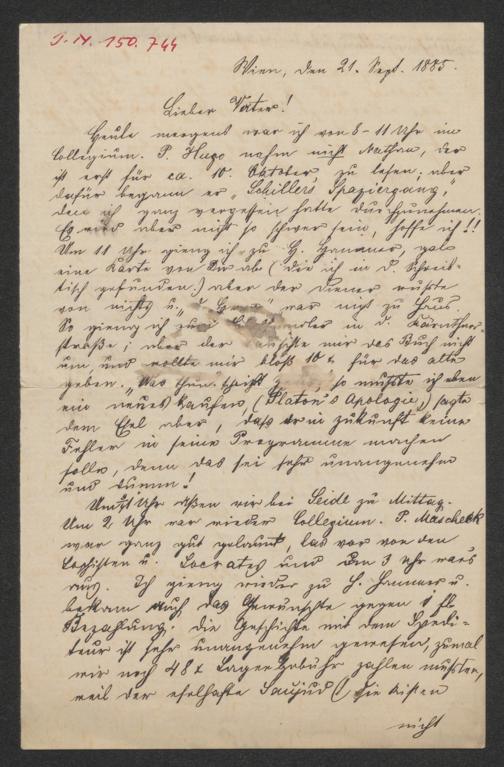 I. N. 150.744
Wien, den 21. Sept. 1885.
Lieber Vater!
Heute morgens war ich von 8-11 Uhr im
Collegium. P. Hugo nahm nicht Nathan, der
ist erst für ca. 10. Oktober, zu lesen, aber
dafür begann er „Schillers Spaziergang,"
den ich ganz vergessen hatte durchzunehmen.
Es wird aber nicht so schwer sein, hoffe ich!!
Um 11 Uhr gieng ich zu H. Hammer, gab
eine Karte von Dir ab (die ich im d. Schreib-
tisch gefunden.) aber der Diener wußte
von nichts u. war nicht zu Haus.
So gieng ich in d. Kärnthner-
straße; aber der tauschte mir das Buch nicht
um, und wollte mir bloß 10 x für das alte
geben. so mußte ich eben
ein neues kaufen, (Platon's Apologie,) sagte
dem Esel aber, daß er in Zukunft keine
Fehler in seine Programme machen
solle, denn das sei sehr unangenehm
und dumm!
Uhr aßen wir bei Seidl zu Mittag.
Um 2 Uhr war wieder Collegium. P. Maschek
war ganz gut gelaunt, las vor von den
Sophisten u. Socrates und um 3 Uhr war's
aus. Ich gieng wieder zu H. Hammer u.
bekam auch das Gewünschte gegen 1 fl.
Bezahlung. die Geschichte mit dem Spedi-
teur ist sehr unangenehm gewesen, zumal
wir noch 48 x Lagergebühr zahlen mußten,
weil der eselhafte Saujud (die Kisten
nicht